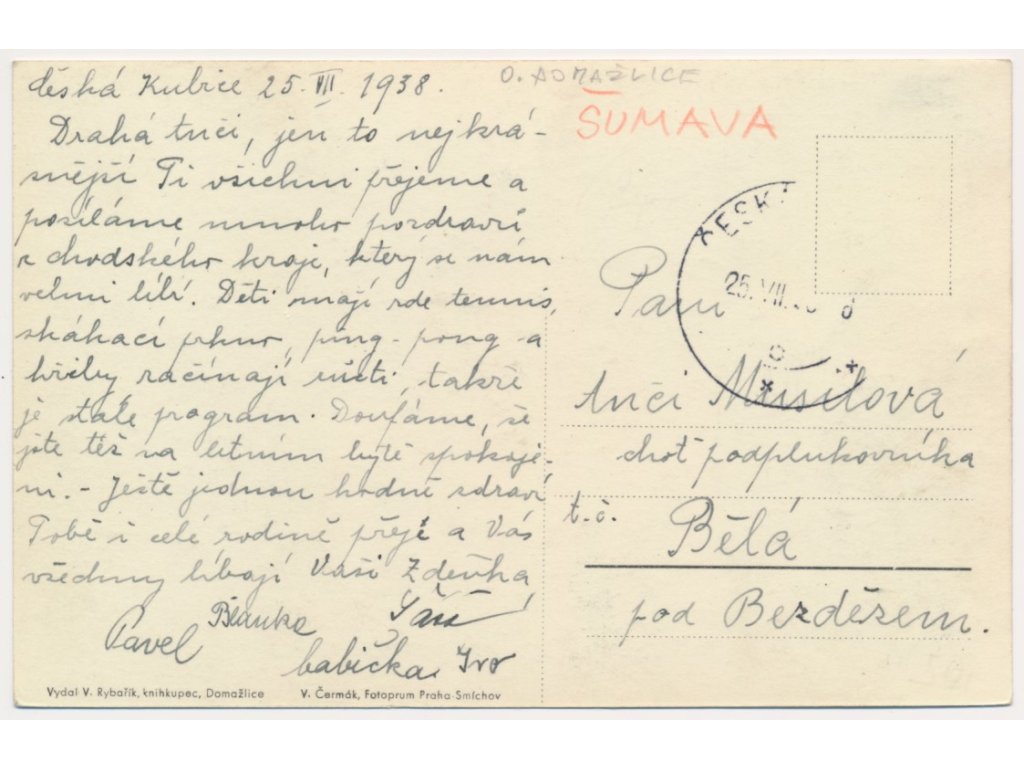 Česká Kubice 25. VII. 1938.
Drahá Anči, jen to nejkrá-
snější Ti všichni přejeme a
posíláme mnoho pozdravů
z chodského kraje, který se nám
velmi líbí. Děti mají zde tennis,
skákací prkno, ping-pong a
hřiby začínají růsti, takže
je stále program. Doufáme, že
jste též na letním bytě spokoje-
ni. - Ještě jednou hodně zdraví
Tobě i celé rodině přeje a Vás
všechny líbají Vaši Zdeňka,
Pavel Blanka
babička Ivo
Vydal V. Rybařík, knihkupec, Domažlice
V. Čermák, Fotoprum Praha-Smíchov
O. DOMAŽLICE
ŠUMAVA
ČESK
25. VII.
Paní
Anči Musilová
choť podplukovníka
t.č.
Bělá
pod Bezdězem.